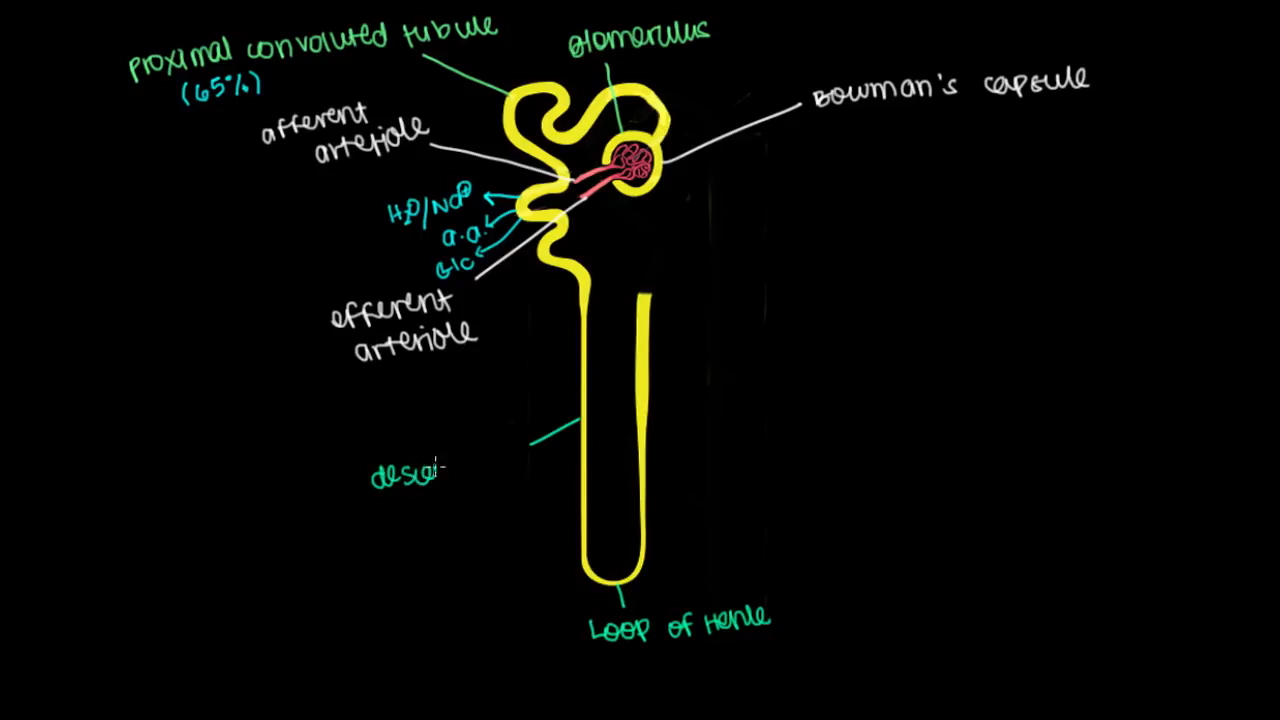 proximal convoluted tubule
(65%)
glomerulus
Bowman's capsule
afferent
arteriole
H2O/Na+
a.a.
Glc
efferent
arteriole
desce
Loop of Henle